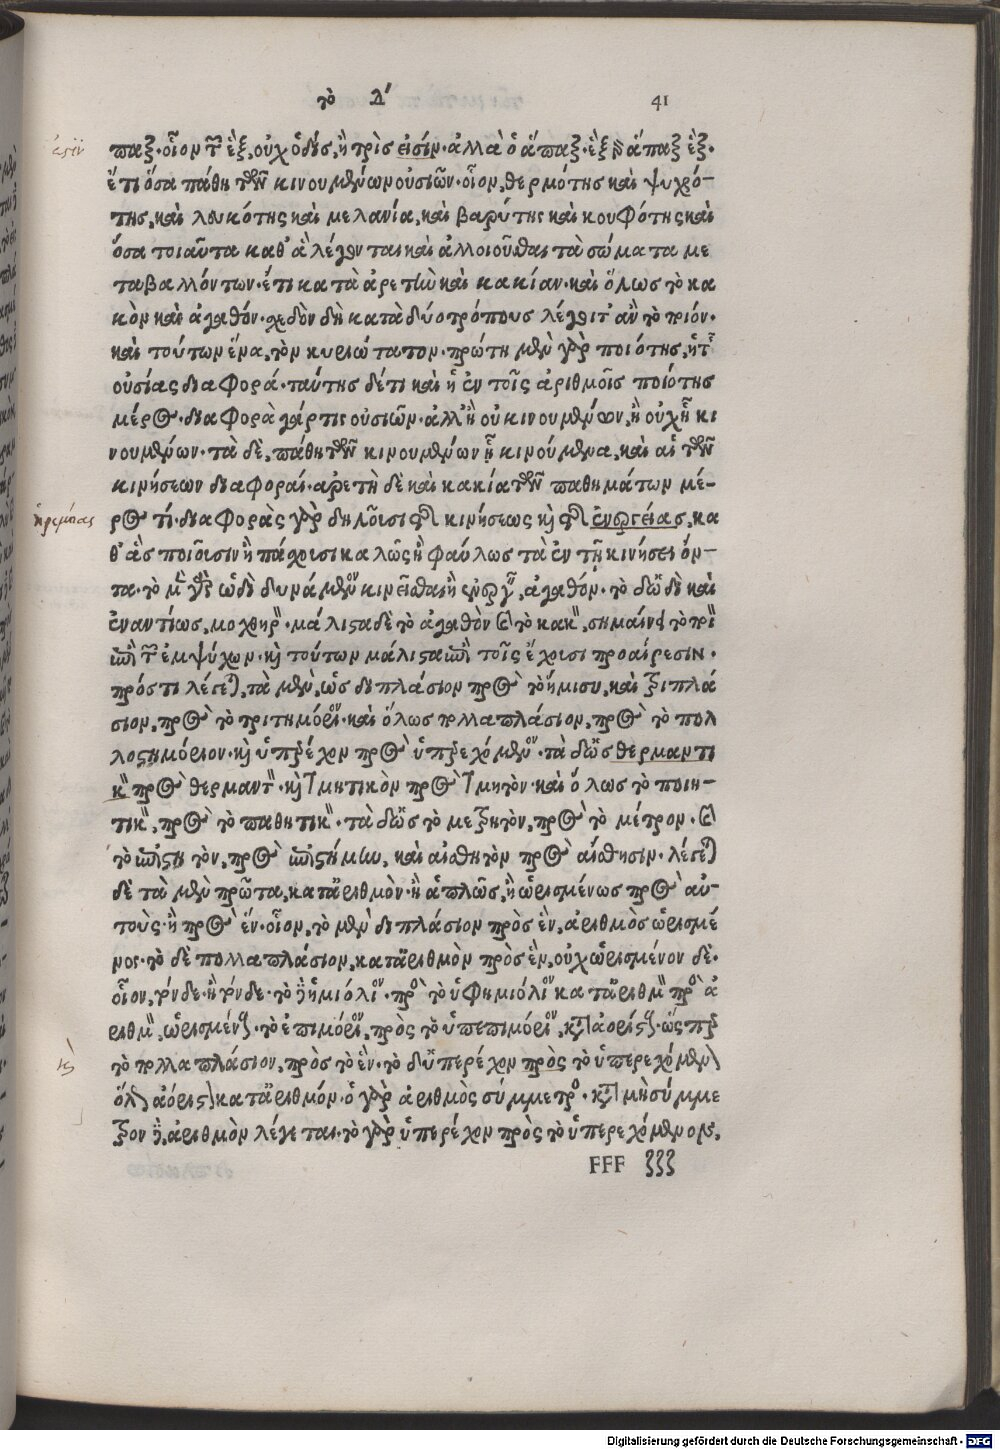 τὸ Δ΄ 41
ἐστὶν
παξ. οἷον τῶν ἓξ, οὐχ ὁ δὶς, ἢ τρὶς εἰσίν. ἀλλὰ ὁ ἅπαξ. ἓξ γὰρ ἅπαξ ἓξ.
ἔτι ὅσα πάθη τῶν κινουμένων οὐσιῶν. οἷον, θερμότης καὶ ψυχρό-
της, καὶ λευκότης καὶ μελανία, καὶ βαρύτης καὶ κουφότης καὶ
ὅσα τοιαῦτα καθ' ἃ λέγονται καὶ ἀλλοιοῦσθαι τὰ σώματα με
ταβαλλόντων. ἔτι κατὰ ἀρετὴν καὶ κακίαν. καὶ ὅλως τὸ κα
κὸν καὶ ἀγαθόν. σχεδὸν δὴ κατὰ δύο τρόπους λέγοιτ' ἂν τὸ ποιόν.
καὶ τούτων ἕνα, τὸν κυριώτατον. πρώτη μὲν γὰρ ποιότης, ἡ τῆς
οὐσίας διαφορά. ταύτης δέ τι καὶ ἡ ἐν τοῖς ἀριθμοῖς ποιότης
μέρος. διαφορὰ γάρ τις οὐσιῶν. ἀλλ' ἢ οὐ κινουμένων, ἢ οὐχ ᾗ κι
νουμένων. τὰ δὲ, πάθη τῶν κινουμένων ᾗ κινούμενα, καὶ αἱ τῶν
κινήσεων διαφοραί. ἀρετὴ δὲ καὶ κακία τῶν παθημάτων μέ-
ἠρεμίας
ρος τί. διαφορὰς γὰρ δηλοῦσι τῆς κινήσεως καὶ τῆς ἐνεργείας, κα
θ' ἃς ποιοῦσιν ἢ πάσχουσι καλῶς ἢ φαύλως τὰ ἐν τῇ κινήσει ὄν-
τα. τὸ μὲν γὰρ ὡδὶ δυνάμενον κινεῖσθαι ἢ ἐνεργεῖν, ἀγαθόν. τὸ δ' ὡδὶ καὶ
ἐναντίως, μοχθηρόν. μάλιστα δὲ τὸ ἀγαθὸν καὶ τὸ κακὸν, σημαίνει τὸ ποιὸν
ἐπὶ τῶν ἐμψύχων. καὶ τούτων μάλιστα ἐπὶ τοῖς ἔχουσι προαίρεσιν.
πρός τι λέγεται, τὰ μὲν, ὡς διπλάσιον πρὸς τὸ ἥμισυ, καὶ τριπλά
σιον, πρὸς τὸ τριτημόριον. καὶ ὅλως πολλαπλάσιον, πρὸς τὸ πολ
λοστημόριον. καὶ ὑπερέχον πρὸς ὑπερεχόμενον. τὰ δ' ὡς θερμαντι
κὸν πρὸς θερμαντόν. καὶ τμητικὸν πρὸς τμητόν. καὶ ὅλως τὸ ποιη-
τικὸν, πρὸς τὸ παθητικόν. τὰ δ' ὡς τὸ μετρητὸν, πρὸς τὸ μέτρον. καὶ
τὸ ἐπιστητὸν, πρὸς ἐπιστήμην, καὶ αἰσθητὸν πρὸς αἴσθησιν. λέγεται
δὲ τὰ μὲν πρῶτα, κατ' ἀριθμὸν. ἢ ἁπλῶς, ἢ ὡρισμένως πρὸς αὐ-
τοὺς. ἢ πρὸς ἕν. οἷον, τὸ μὲν διπλάσιον πρὸς ἓν, ἀριθμὸς ὡρισμέ
νος. τὸ δὲ πολλαπλάσιον, κατ' ἀριθμὸν πρὸς ἓν, οὐχ ὡρισμένον δὲ.
οἷον, τόνδε. ἢ τόνδε. τὸ δὲ ἡμιόλιον. πρὸς τὸ ὑφημιόλιον κατ' ἀριθμὸν πρὸς ἀ
ριθμὸν, ὡρισμένον. τὸ ἐπιμόριον, πρὸς τὸ ὑπεπιμόριον, κατὰ ἀόριστον. ὥσπερ
τὸ πολλαπλάσιον, πρὸς τὸ ἕν. τὸ δ' ὑπερέχον πρὸς τὸ ὑπερεχόμενον
ὅλως ἀόριστον κατ' ἀριθμόν. ὁ γὰρ ἀριθμὸς σύμμετρος. κατὰ μὴ σύμμε
τρον δὲ, ἀριθμὸν λέγεται. τὸ γὰρ ὑπερέχον πρὸς τὸ ὑπερεχόμενον,
FFF ζζζ
Digitalisierung gefördert durch die Deutsche Forschungsgemeinschaft - DFG